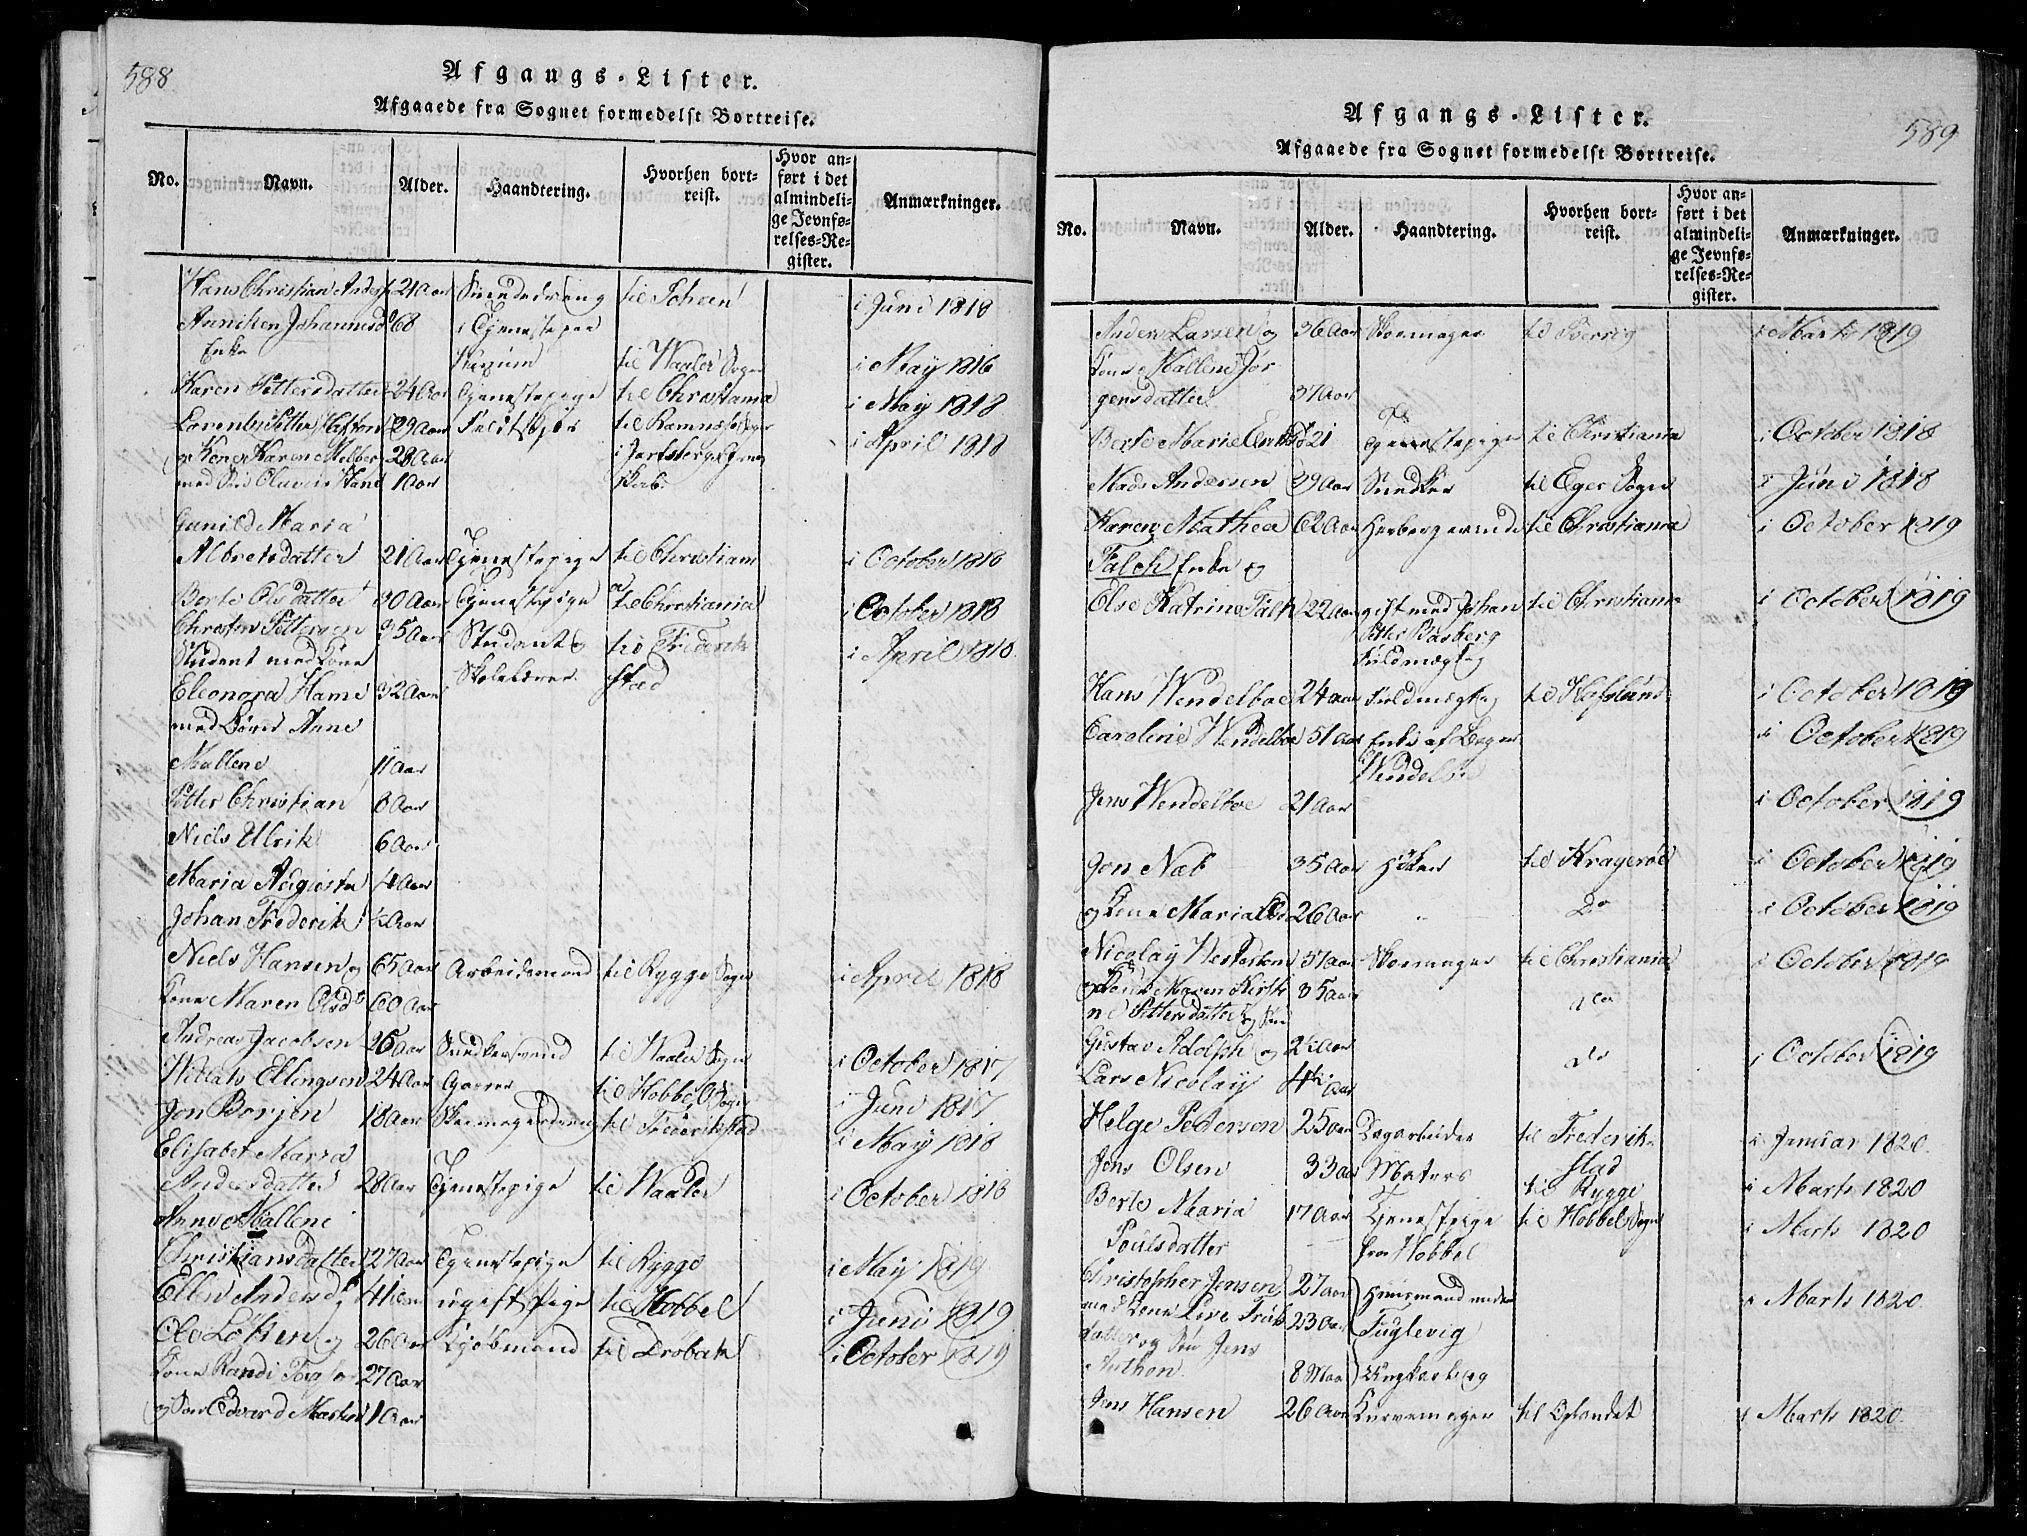 588
Afgangs-Lister.
Afgaaede fra Sognet formedelst Bortreise.
No.
Navn.
Alder.
Haandtering.
Hvorhen bort-
reist.
Hvor an-
ført i det
almindeli-
ge Jevnfø-
relses-Re-
gister.
Anmærkninger.
Hans Christian Anders 21 Aar Snedkerdreng til i Juni 1818
Anniken Johannesd 68 i Tjeneste paa
Enke til Waaler Sogn i May 1816
Karen Pettersdatter 24 Aar Tjenestepige til Christiania i May 1818
Petter 29 Aar til Ramnæs Sogn i April 1818
og Kone Karen 28 Aar i Jarlsberg
med Søn 1 Aar
Gunild Maria
Albretsdatter 21 Aar Tjenestepige til Christiania i October 1818
Berte Olsdatter 30 Aar Tjenestepige til Christiania i October 1818
Christen Pettersen 35 Aar Student og til Frederik- i April 1818
Student med Kone Skolelærer stad
Eleonora Hame 32 Aar
med Børn Anne
Mallene 11 Aar
Petter Christian 8 Aar
Niels Ulrik 6 Aar
Maria Augusta 4 Aar
Johan Frederik ½ Aar
Niels Hansen og 65 Aar Arbeidsmand til Rygge Sogn i April 1818
Kone Maren Olsd 60 Aar
Andreas Jacobsen 26 Aar Snedkersvend til Waaler Sogn i October 1817
Ellingsen 24 Aar Garver til Hobbel Sogn i Juni 1817
Jon Borjen 18 Aar Skomagerdreng til Frederikstad i May 1818
Elisabet Maria
Andersdatter 28 Aar Tjenestepige til Waaler i October 1818
Anne Mallene
Christiansdatter 27 Aar Tjenestepige til Rygge i May 1819
Ellen Andersd 41 Aar ugift Pige til Hobbel i Juni 1819
Ole Løken og 26 Aar Kjøbmand til Drøbak i October 1819
Kone Randi 27 Aar
og Søn Edvard Martin 1 Aar
589
Afgangs-Lister.
Afgaaede fra Sognet formedelst Bortreise.
No.
Navn.
Alder.
Haandtering.
Hvorhen bort-
reist.
Hvor an-
ført i det
almindeli-
ge Jevnfø-
relses-Re-
gister.
Anmærkninger.
Anders Larsen og 36 Aar Skomager til Sverrig i Marts 1819
Kone Mallene Jør
gensdatter 37 Aar
Berte Marie 21 Tjenestepige til Christiania i October 1818
Mads Andersen 39 Aar Snedker til Eger Sogn i Juni 1818
Karen Mathea 62 Aar til Christiania i October 1819
Falch Enke og
Else Katrine Falch 22 Aar gift med Johan til Christiania i October 1819
Petter Basberg
Fuldmægtig
Hans Wendelboe 24 Aar Fuldmægtig til Hafslund i October 1819
Caroline Wendelboe 51 Aar Enke af i October 1819
Wendelboe
Jens Wendelboe 21 Aar i October 1819
Jon Næb 35 Aar Høker til Kragerøe i October 1819
og Kone Maria 26 Aar Do i October 1819
Nicolay 37 Aar Skomager til Christiania i October 1819
og Kone Maren Kirsti 35 Aar do
ne Pettersdatter og Søn
Gustav Adolph og 2½ Aar do i October 1819
Lars Nicolay 4½ Aar
Helge Pedersen 25 Aar Dagarbeider til Frederik- i Januar 1820.
Jens Olsen 33 Aar Matros stad
til Rygge i Marts 1820
Berte Maria 17 Aar Tjenestepige til Hobbel Sogn i Marts 1820
Poulsdatter fra Hobbel
Christopher Jensen 27 Aar Huusmand under i Marts 1820
med Kone 23 Aar Fuglevig
datter og Søn Jens
Anthon 8 Maa
Jens Hansen 26 Aar Kurvemager til Oplandet i Marts 1820.